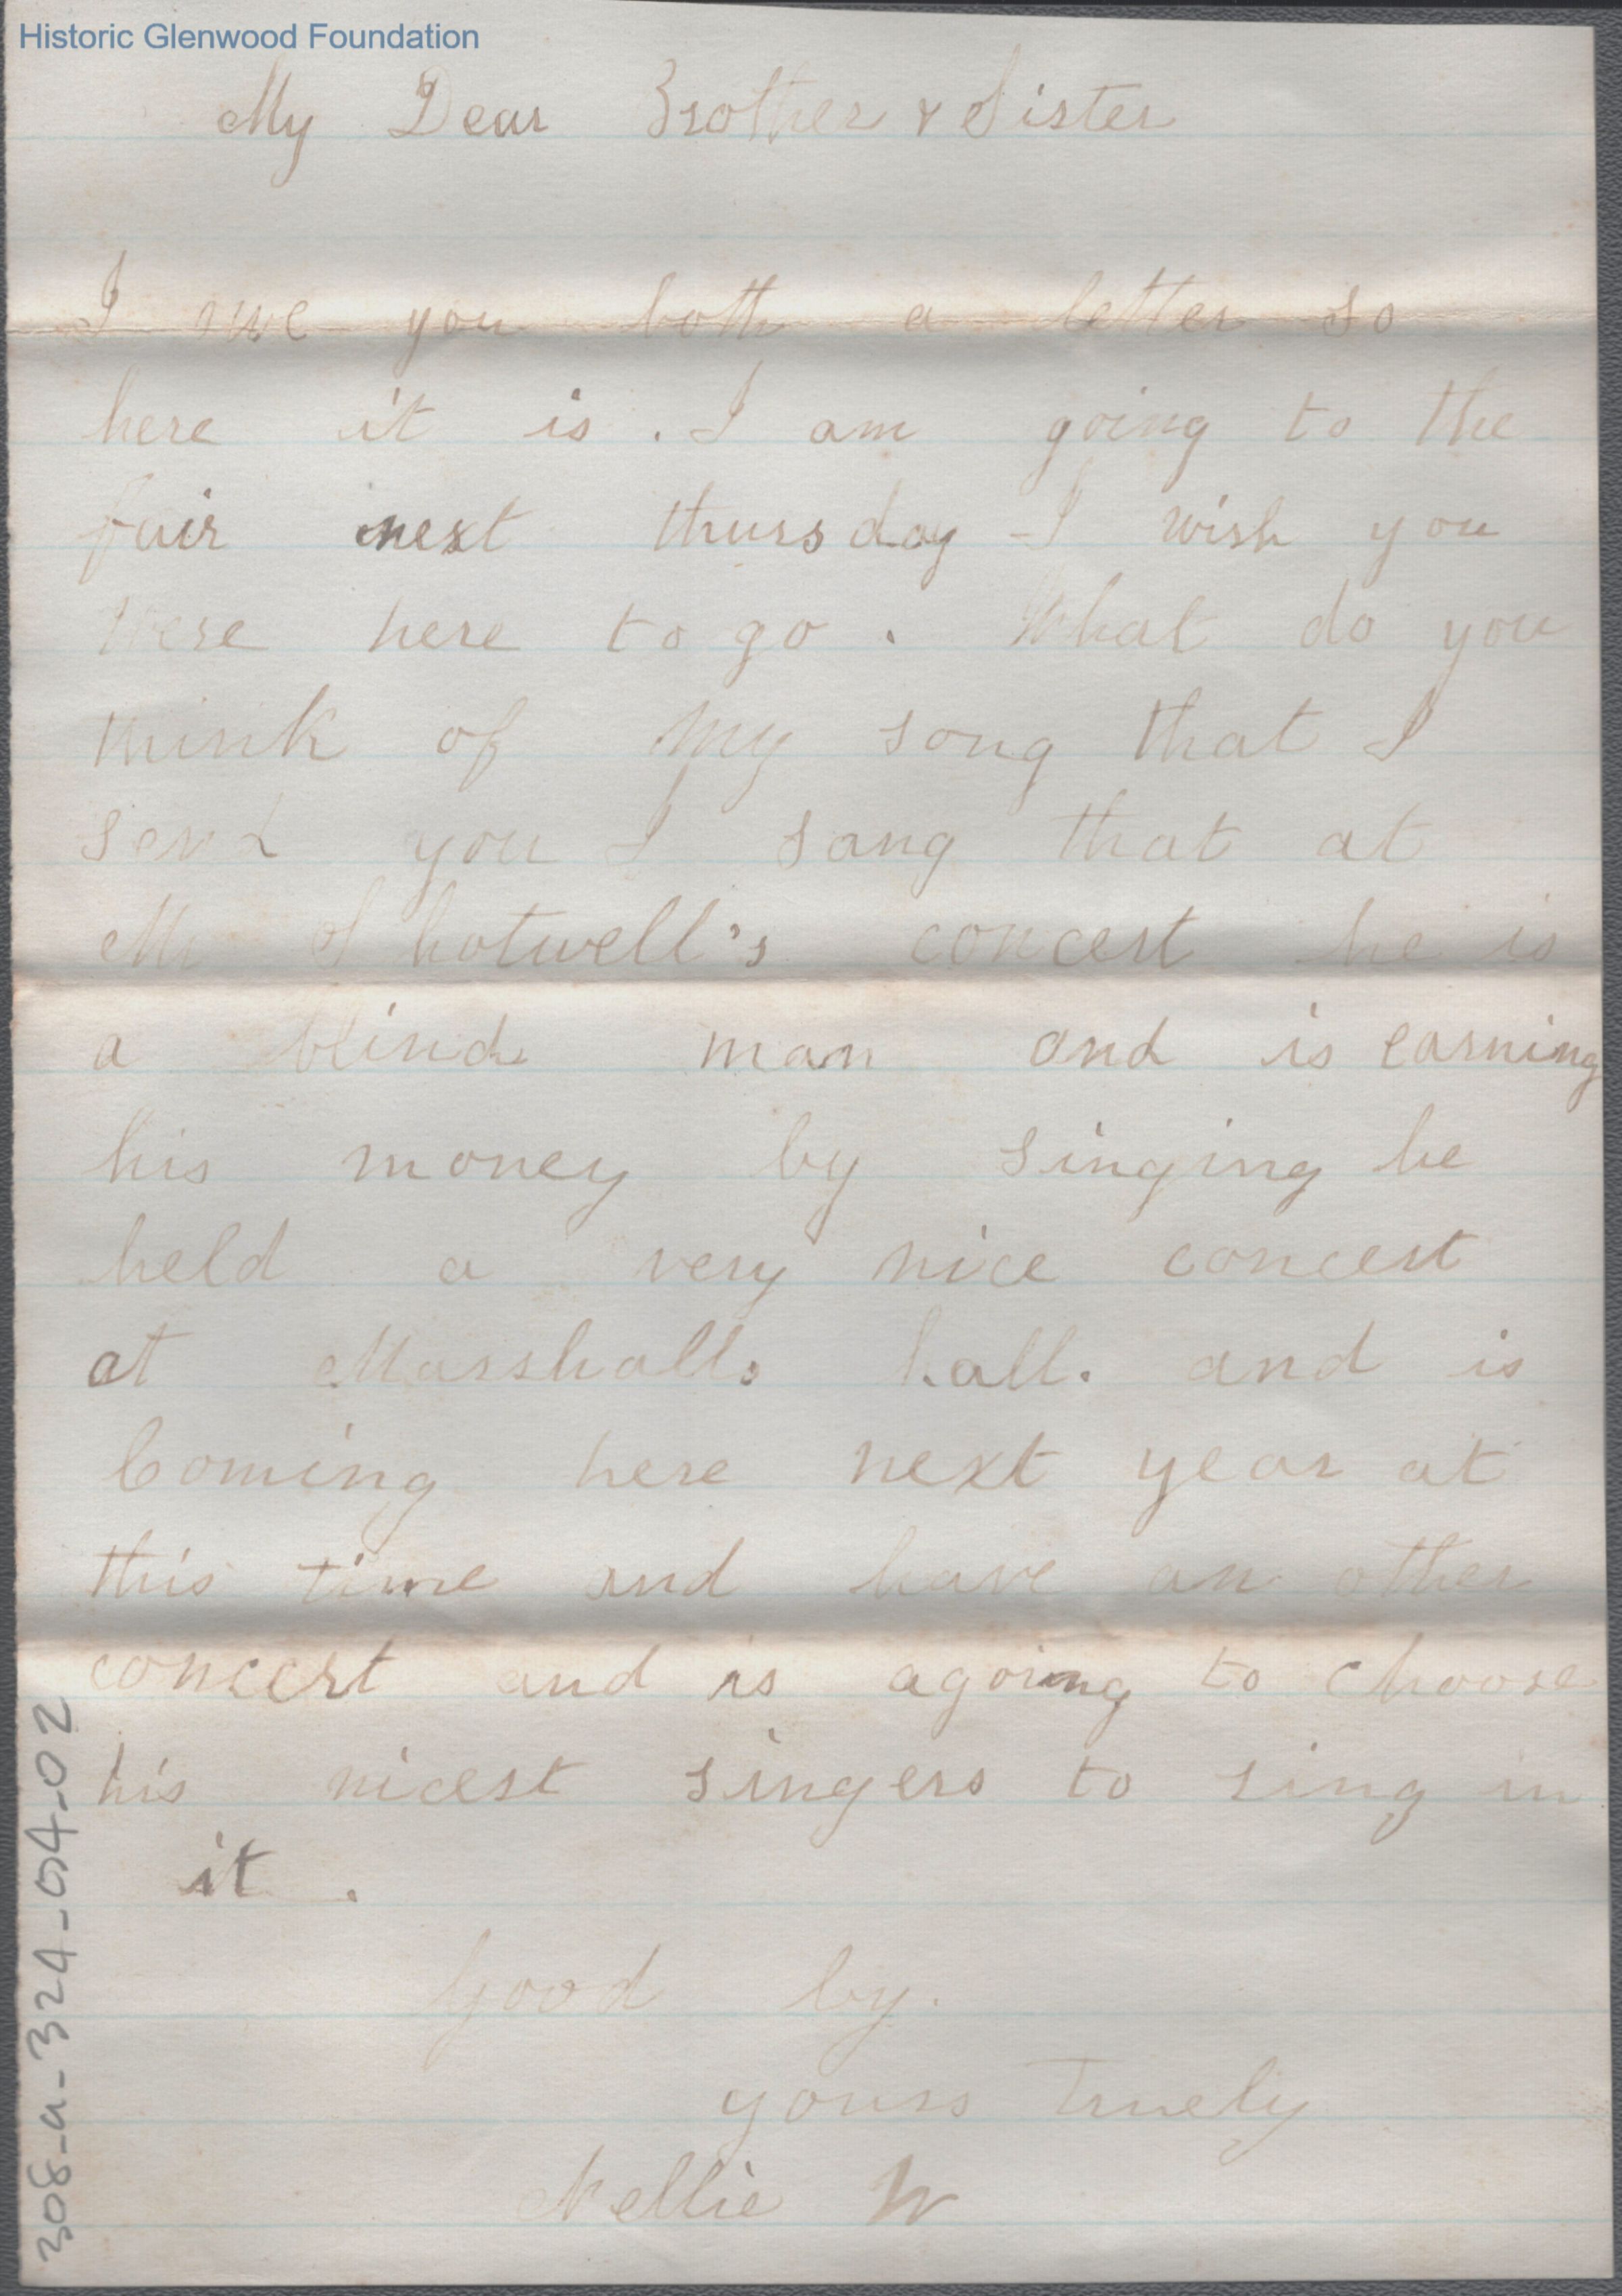 Historic Glenwood Foundation
My Dear Brother & Sister
I owe you both a letter so
here it is. I am going to the
fair next thursday I wish you
were here to go. What do you
think of my song that I
send you I sang that at
Mr Shotwell's concert he is
a blind man and is earning
his money by singing he
held a very nice concert
at Marshalls hall. and is
Coming here next year at
this time and have an other
concert and is agoing to choose
his nicest singers to sing in
it.
Good by.
yours Truely
Nellie W
308-a-324-04-02